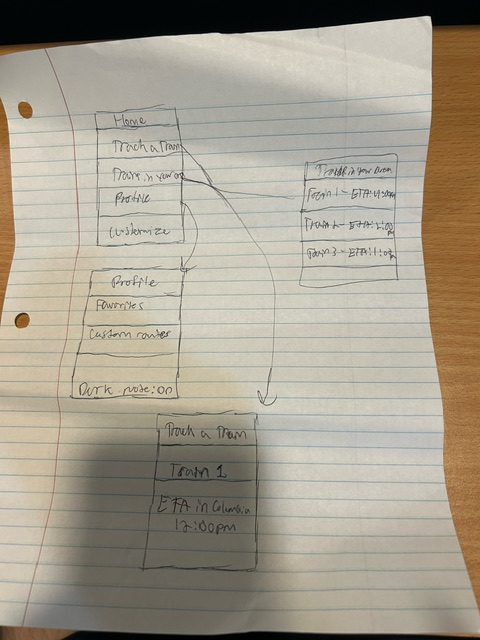 Home
Track a Train
Trains in your area
Profile
Customize
Trains in your Area
Train 1 - ETA:
Train 2 - ETA:
Train 3 - ETA:
Profile
Favorites
Custom routes
Dark mode: on
Track a Train
Train 1
ETA in Columbia
12:00pm